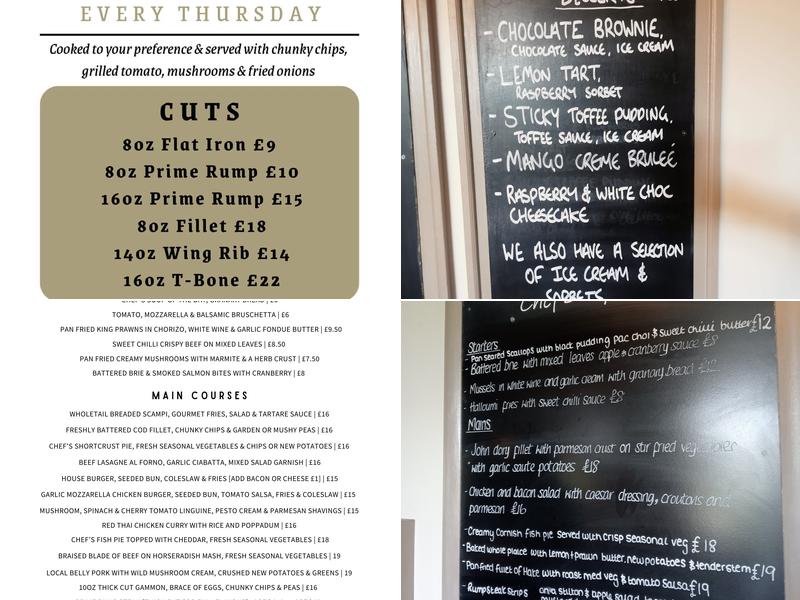 EVERY THURSDAY
Cooked to your preference & served with chunky chips,
grilled tomato, mushrooms & fried onions
CUTS
8oz Flat Iron £9
8oz Prime Rump £10
16oz Prime Rump £15
8oz Fillet £18
14oz Wing Rib £14
16oz T-Bone £22
TOMATO, MOZZARELLA & BALSAMIC BRUSCHETTA | £6
PAN FRIED KING PRAWNS IN CHORIZO, WHITE WINE & GARLIC FONDUE BUTTER | £9.50
SWEET CHILLI CRISPY BEEF ON MIXED LEAVES | £8.50
PAN FRIED CREAMY MUSHROOMS WITH MARMITE & A HERB CRUST | £7.50
BATTERED BRIE & SMOKED SALMON BITES WITH CRANBERRY | £8
MAIN COURSES
WHOLETAIL BREADED SCAMPI, GOURMET FRIES, SALAD & TARTARE SAUCE | £16
FRESHLY BATTERED COD FILLET, CHUNKY CHIPS & GARDEN OR MUSHY PEAS | £16
CHEF'S SHORTCRUST PIE, FRESH SEASONAL VEGETABLES & CHIPS OR NEW POTATOES | £16
BEEF LASAGNE AL FORNO, GARLIC CIABATTA, MIXED SALAD GARNISH | £16
HOUSE BURGER, SEEDED BUN, COLESLAW & FRIES [ADD BACON OR CHEESE £1] | £15
GARLIC MOZZARELLA CHICKEN BURGER, SEEDED BUN, TOMATO SALSA, FRIES & COLESLAW | £15
MUSHROOM, SPINACH & CHERRY TOMATO LINGUINE, PESTO CREAM & PARMESAN SHAVINGS | £15
RED THAI CHICKEN CURRY WITH RICE AND POPPADUM | £16
CHEF'S FISH PIE TOPPED WITH CHEDDAR, FRESH SEASONAL VEGETABLES | £18
BRAISED BLADE OF BEEF ON HORSERADISH MASH, FRESH SEASONAL VEGETABLES | 19
LOCAL BELLY PORK WITH WILD MUSHROOM CREAM, CRUSHED NEW POTATOES & GREENS | 19
10OZ THICK CUT GAMMON, BRACE OF EGGS, CHUNKY CHIPS & PEAS | £16
- CHOCOLATE BROWNIE,
CHOCOLATE SAUCE, ICE CREAM
- LEMON TART,
RASPBERRY SORBET
- STICKY TOFFEE PUDDING,
TOFFEE SAUCE, ICE CREAM
- MANGO CREME BRULEÉ
- RASPBERRY & WHITE CHOC
CHEESECAKE
WE ALSO HAVE A SELECTION
OF ICE CREAM &
SORBETS.
Starters
- Pan Seared Scallops with black pudding pac choi & sweet chilli butter £12
- Battered brie with mixed leaves apple & cranberry sauce £8
- Mussels in white wine and garlic cream with granary bread £12
- Halloumi fries with sweet chilli sauce £8
Mains
- John dory fillet with parmesan crust on stir fried vegetables
with garlic saute potatoes £18
- Chicken and bacon salad with caesar dressing, croutons and
parmesan £16
- Creamy Cornish fish pie served with crisp seasonal veg £18
- Baked whole plaice with lemon + prawn butter, new potatoes & tenderstem £19
- Pan fried fillet of Hake with roast med veg & tomato salsa £19
- Rump steak strips